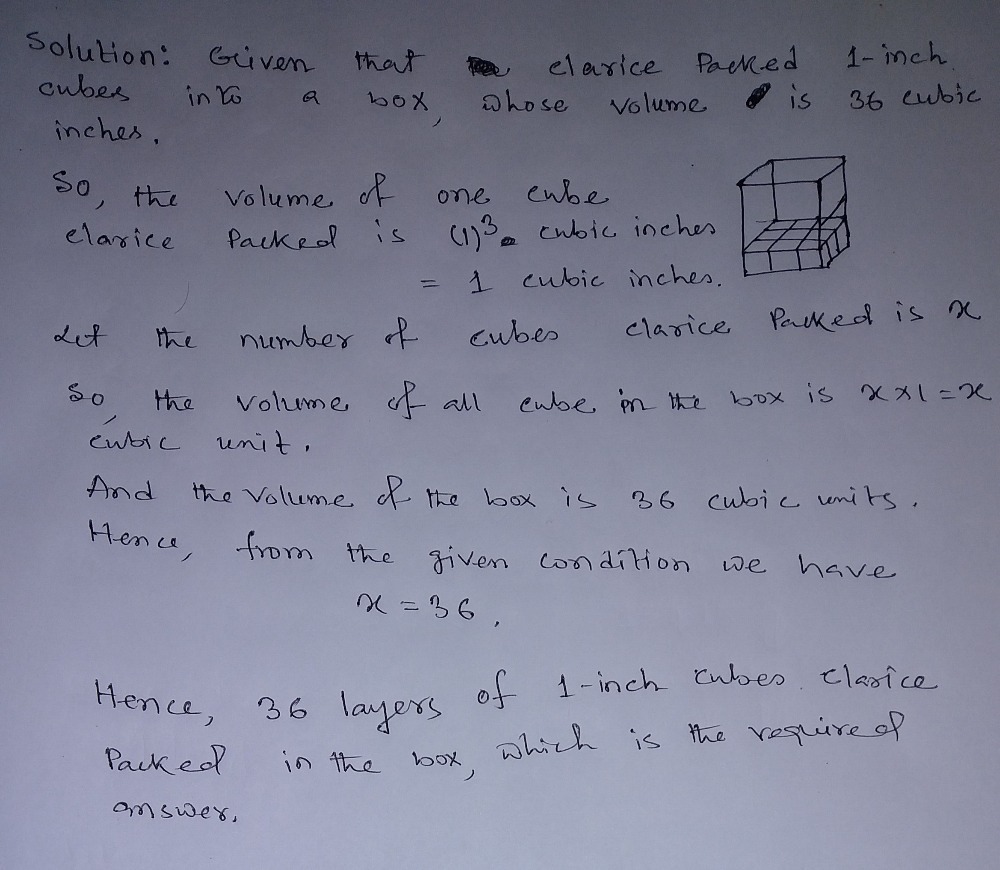 Solution: Given that clarice Packed 1-inch
cubes into a box, whose volume is 36 cubic
inches.
So, the volume of one cube
clarice Packed is (1)³ cubic inches
= 1 cubic inches.
Let the number of cubes clarice Packed is x
So, the volume of all cube in the box is x×1=x
cubic unit.
And the volume of the box is 36 cubic units.
Hence, from the given condition we have
x = 36.
Hence, 36 layers of 1-inch cubes clarice
Packed in the box, which is the required
answer.